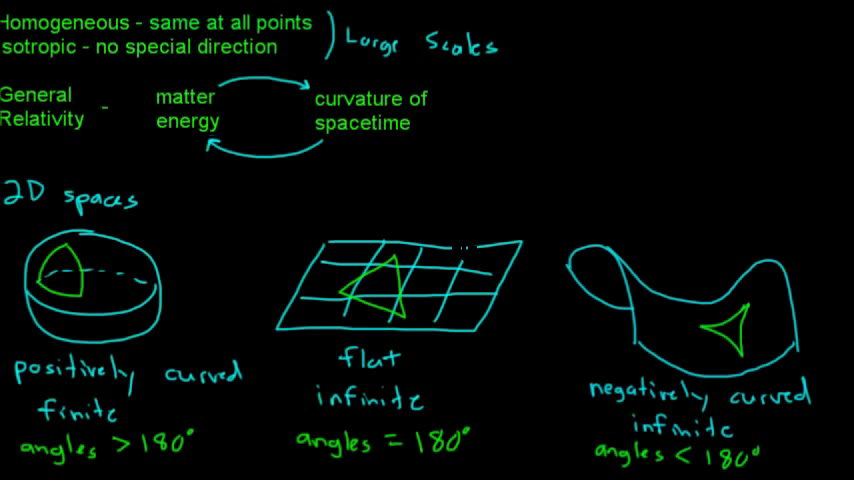 Homogeneous - same at all points
sotropic - no special direction
Large Scales
General Relativity - matter energy curvature of spacetime
2D spaces
positively curved
finite
angles > 180°
flat
infinite
angles = 180°
negatively curved
infinite
angles < 180°